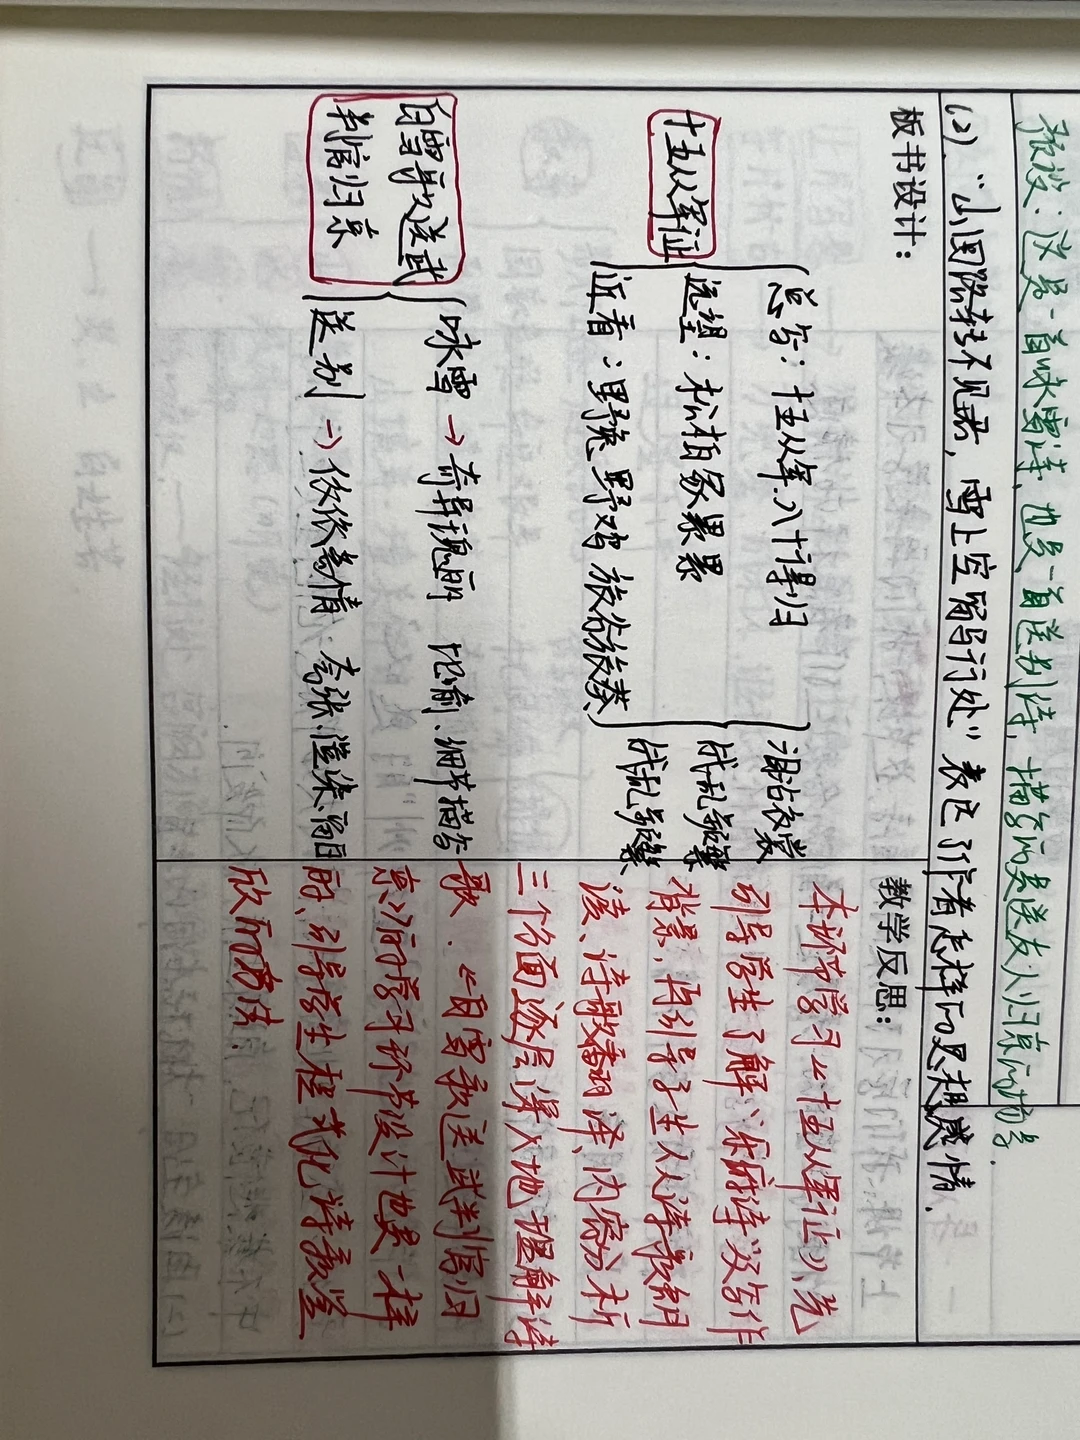 预设：这是一首咏雪诗，也是一首送别诗，描写的是送友人归京的场景.
(2)、“山回路转不见君，雪上空留马行处”表达了作者怎样的思想感情.
板书设计：
十五从军征
总写：十五从军.八十得归
远望：松柏冢累累
近看：野兔 野鸡 旅谷旅葵
泪沾衣裳
战乱频繁
战乱频繁
白雪歌送武
判官归京
咏雪→奇异瑰丽 比喻、细节描写
送别→依依惜情：夸张、渲染、留白
教学反思：
本环节学习《十五从军征》，先
引导学生了解“乐府诗”及写作
背景，再引导学生从诗歌朗
读、诗歌翻译、内容分析
三个方面逐层深入地理解诗
歌.《白雪歌送武判官归
京》的学习环节设计也是一样
的、引导学生程式化诗歌鉴
欣的方法.